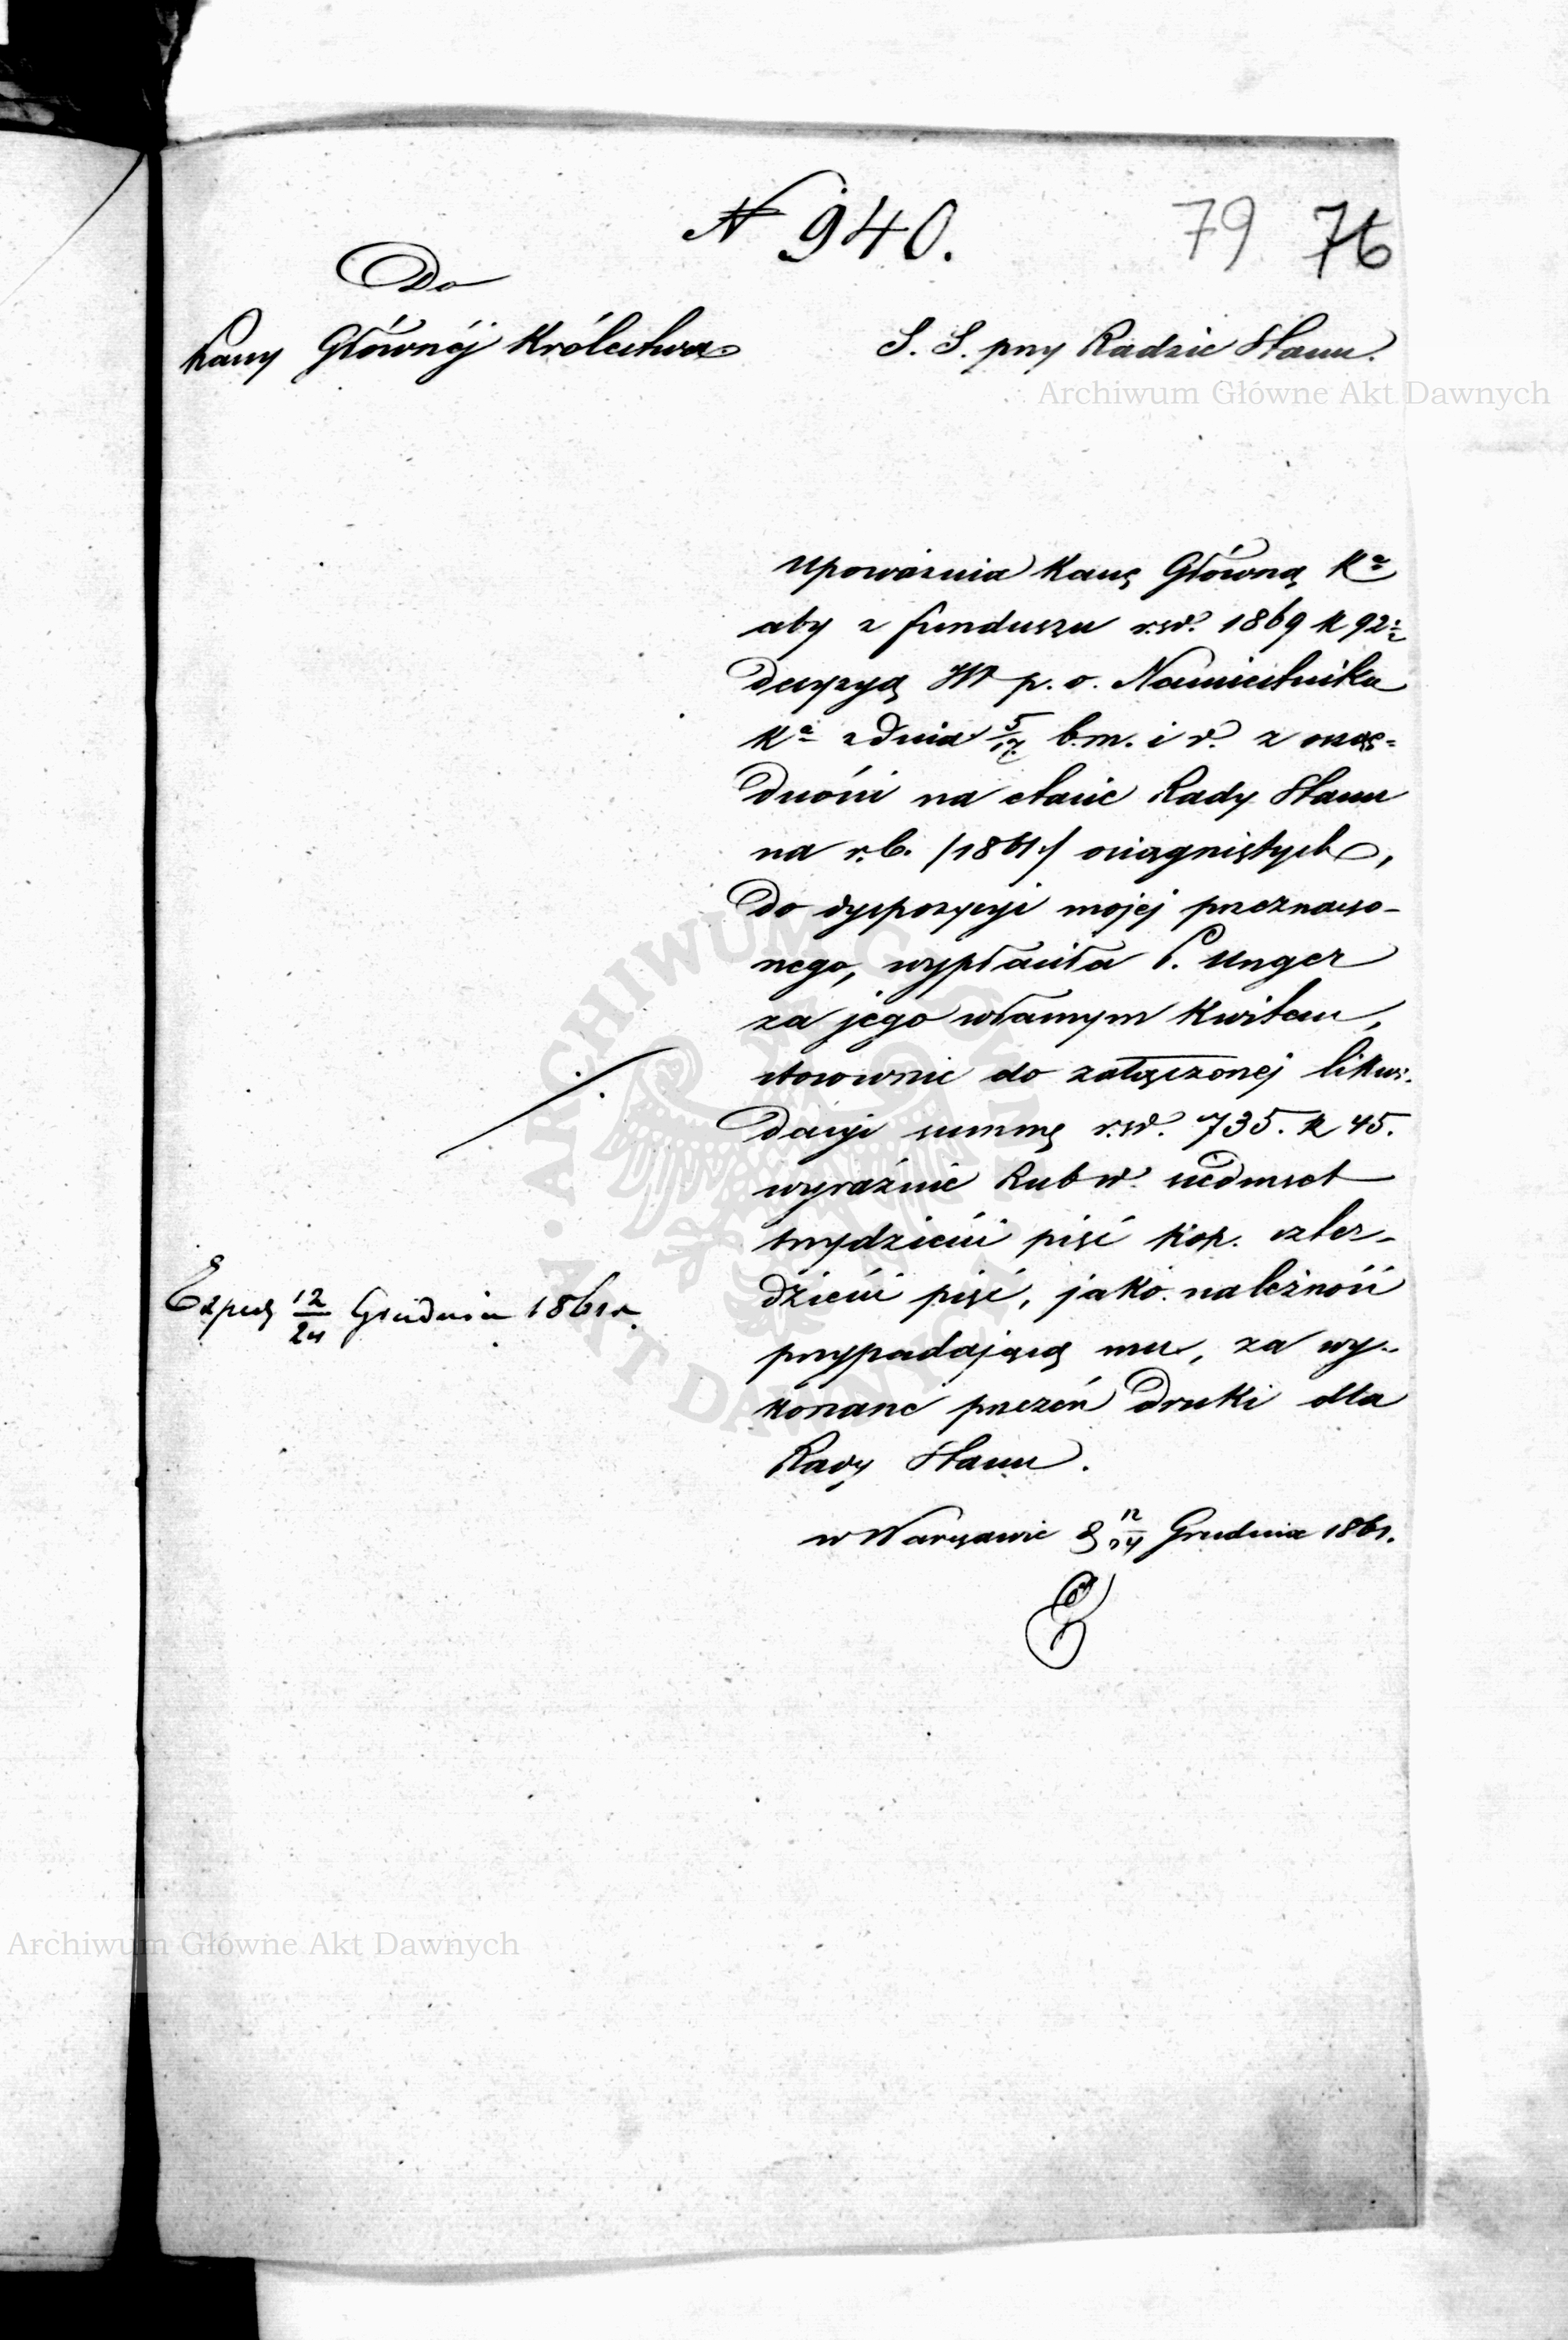 N 940.
79 76
Do
Kassy Głównéj Królestwa
S. S. przy Radzie Stanu.
Archiwum Główne Akt Dawnych
Upoważnia Kassę Główną Kª
aby z funduszu rsr. 1869 k 92½
decyzyą JW p. o. Namiestnika
Kª z dnia 5/17 b.m. i r. z oszczę=
dności na etacie Rady Stanu
na r.b. /1861/ osiągniętych,
do dyspozycyi mojej przeznaczo-
nego, wypłaciła P. Unger
za jego własnym Kwitem,
stosownie do załączonej likwi-
dacyi summę rsr. 735. k 45.
wyraźnie Rub sr. siedmset
trzydzieści pięć kop. czter-
dzieści pięć, jako należność
przypadającą mu, za wy-
konane przezeń druki dla
Rady Stanu.
Exped 12/24 Grudnia 1861 r.
w Warszawie d 12/24 Grudnia 1861.
ARCHIWUM GŁÓWNE AKT DAWNYCH
Archiwum Główne Akt Dawnych